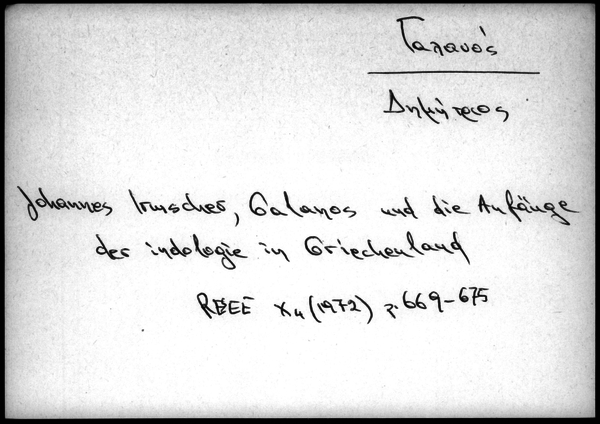 Γαλανός
Δημήτριος
Johannes Irmscher, Galanos und die Anfänge
der indologie in Griechenland
RESEE X4 (1972) p. 669-675